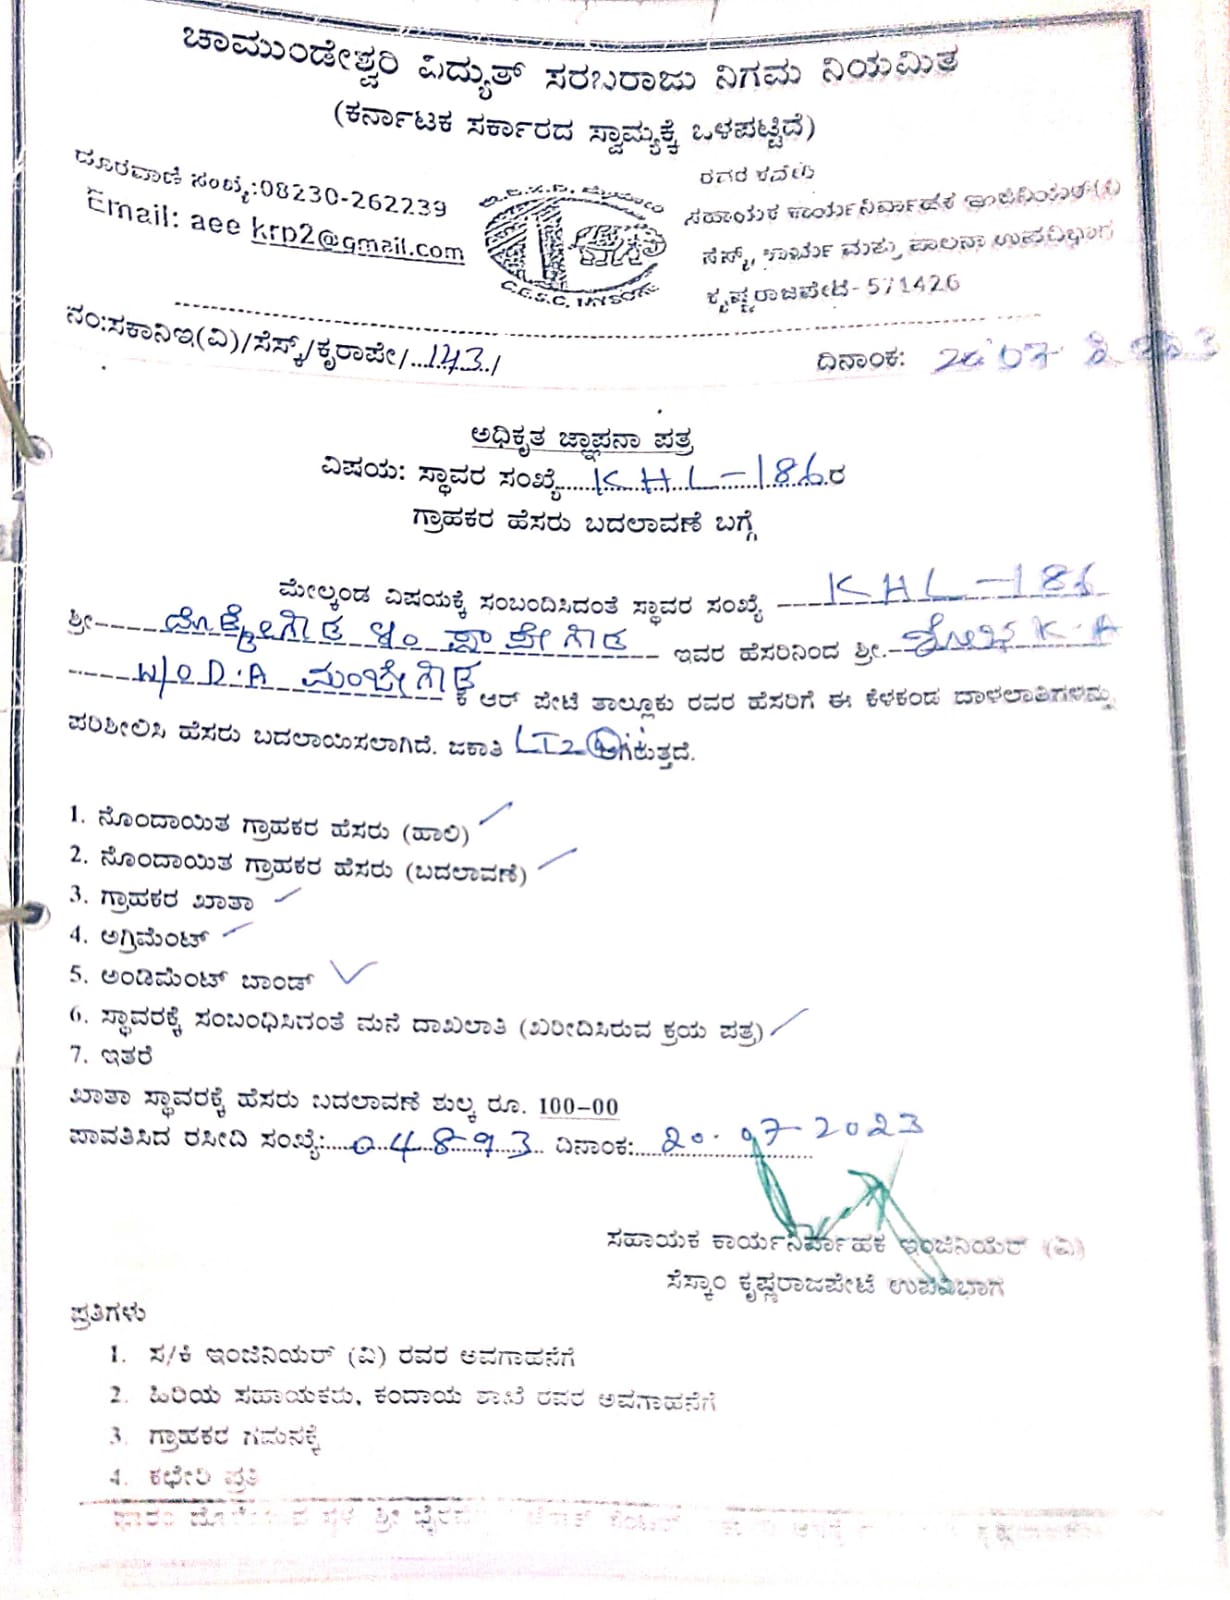 ಚಾಮುಂಡೇಶ್ವರಿ ವಿದ್ಯುತ್ ಸರಬರಾಜು ನಿಗಮ ನಿಯಮಿತ
(ಕರ್ನಾಟಕ ಸರ್ಕಾರದ ಸ್ವಾಮ್ಯಕ್ಕೆ ಒಳಪಟ್ಟಿದೆ)
ದೂರವಾಣಿ ಸಂಖ್ಯೆ:08230-262239
Email: aee krp2@gmail.com
C.E.S.C. MYSORE
ರವರ ಕಛೇರಿ
ಸಹಾಯಕ ಕಾರ್ಯನಿರ್ವಾಹಕ ಇಂಜಿನಿಯರ್(ವಿ)
ಸೆಸ್ಕ್, ಕಾರ್ಯ ಮತ್ತು ಪಾಲನಾ ಉಪವಿಭಾಗ
ಕೃಷ್ಣರಾಜಪೇಟೆ- 571426
ನಂ:ಸಕಾನಿಇ(ವಿ)/ಸೆಸ್ಕ್/ಕೃರಾಪೇ/..143./
ದಿನಾಂಕ: 20 07 2023
ಅಧಿಕೃತ ಜ್ಞಾಪನಾ ಪತ್ರ
ವಿಷಯ: ಸ್ಥಾವರ ಸಂಖ್ಯೆ KHL-186 ರ
ಗ್ರಾಹಕರ ಹೆಸರು ಬದಲಾವಣೆ ಬಗ್ಗೆ
ಮೇಲ್ಕಂಡ ವಿಷಯಕ್ಕೆ ಸಂಬಂದಿಸಿದಂತೆ ಸ್ಥಾವರ ಸಂಖ್ಯೆ KHL-186
ಶ್ರೀ ಇವರ ಹೆಸರಿನಿಂದ ಶ್ರೀ. K.A
W/O D.A ಮಂಜೇಗೌಡ ಕೆ ಆರ್ ಪೇಟೆ ತಾಲ್ಲೂಕು ರವರ ಹೆಸರಿಗೆ ಈ ಕೆಳಕಂಡ ದಾಳಲಾತಿಗಳನ್ನು
ಪರಿಶೀಲಿಸಿ ಹೆಸರು ಬದಲಾಯಿಸಲಾಗಿದೆ. ಜಕಾತಿ LT2 ಆಗಿರುತ್ತದೆ.
1. ನೊಂದಾಯಿತ ಗ್ರಾಹಕರ ಹೆಸರು (ಹಾಲಿ)
2. ನೊಂದಾಯಿತ ಗ್ರಾಹಕರ ಹೆಸರು (ಬದಲಾವಣೆ)
3. ಗ್ರಾಹಕರ ಖಾತಾ
4. ಅಗ್ರಿಮೆಂಟ್
5. ಅಂಡಿಮೆಂಟ್ ಬಾಂಡ್
6. ಸ್ಥಾವರಕ್ಕೆ ಸಂಬಂಧಿಸಿದಂತೆ ಮನೆ ದಾಖಲಾತಿ (ಖರೀದಿಸಿರುವ ಕ್ರಯ ಪತ್ರ)
7. ಇತರೆ
ಖಾತಾ ಸ್ಥಾವರಕ್ಕೆ ಹೆಸರು ಬದಲಾವಣೆ ಶುಲ್ಕ ರೂ. 100-00
ಪಾವತಿಸಿದ ರಸೀದಿ ಸಂಖ್ಯೆ: 04893 ದಿನಾಂಕ: 20.07-2023
ಸಹಾಯಕ ಕಾರ್ಯನಿರ್ವಾಹಕ ಇಂಜಿನಿಯರ್ (ವಿ)
ಸೆಸ್ಕಾಂ ಕೃಷ್ಣರಾಜಪೇಟೆ ಉಪವಿಭಾಗ
ಪ್ರತಿಗಳು
1. ಸ/ಕಿ ಇಂಜಿನಿಯರ್ (ವಿ) ರವರ ಅವಗಾಹನೆಗೆ
2. ಹಿರಿಯ ಸಹಾಯಕರು, ಕಂದಾಯ ಶಾಖೆ ರವರ ಅವಗಾಹನೆಗೆ
3. ಗ್ರಾಹಕರ ಗಮನಕ್ಕೆ
4. ಕಛೇರಿ ಪ್ರತಿ